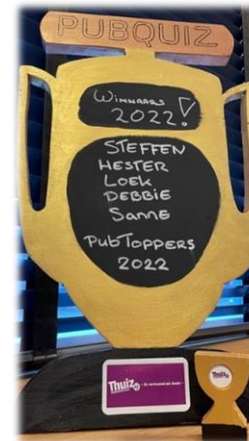 PUBQUIZ
WINNAARS
2022!
STEFFEN
HESTER
LOEK
DEBBIE
SANNE
PUBTOPPERS
2022
Thuiz
Thuiz